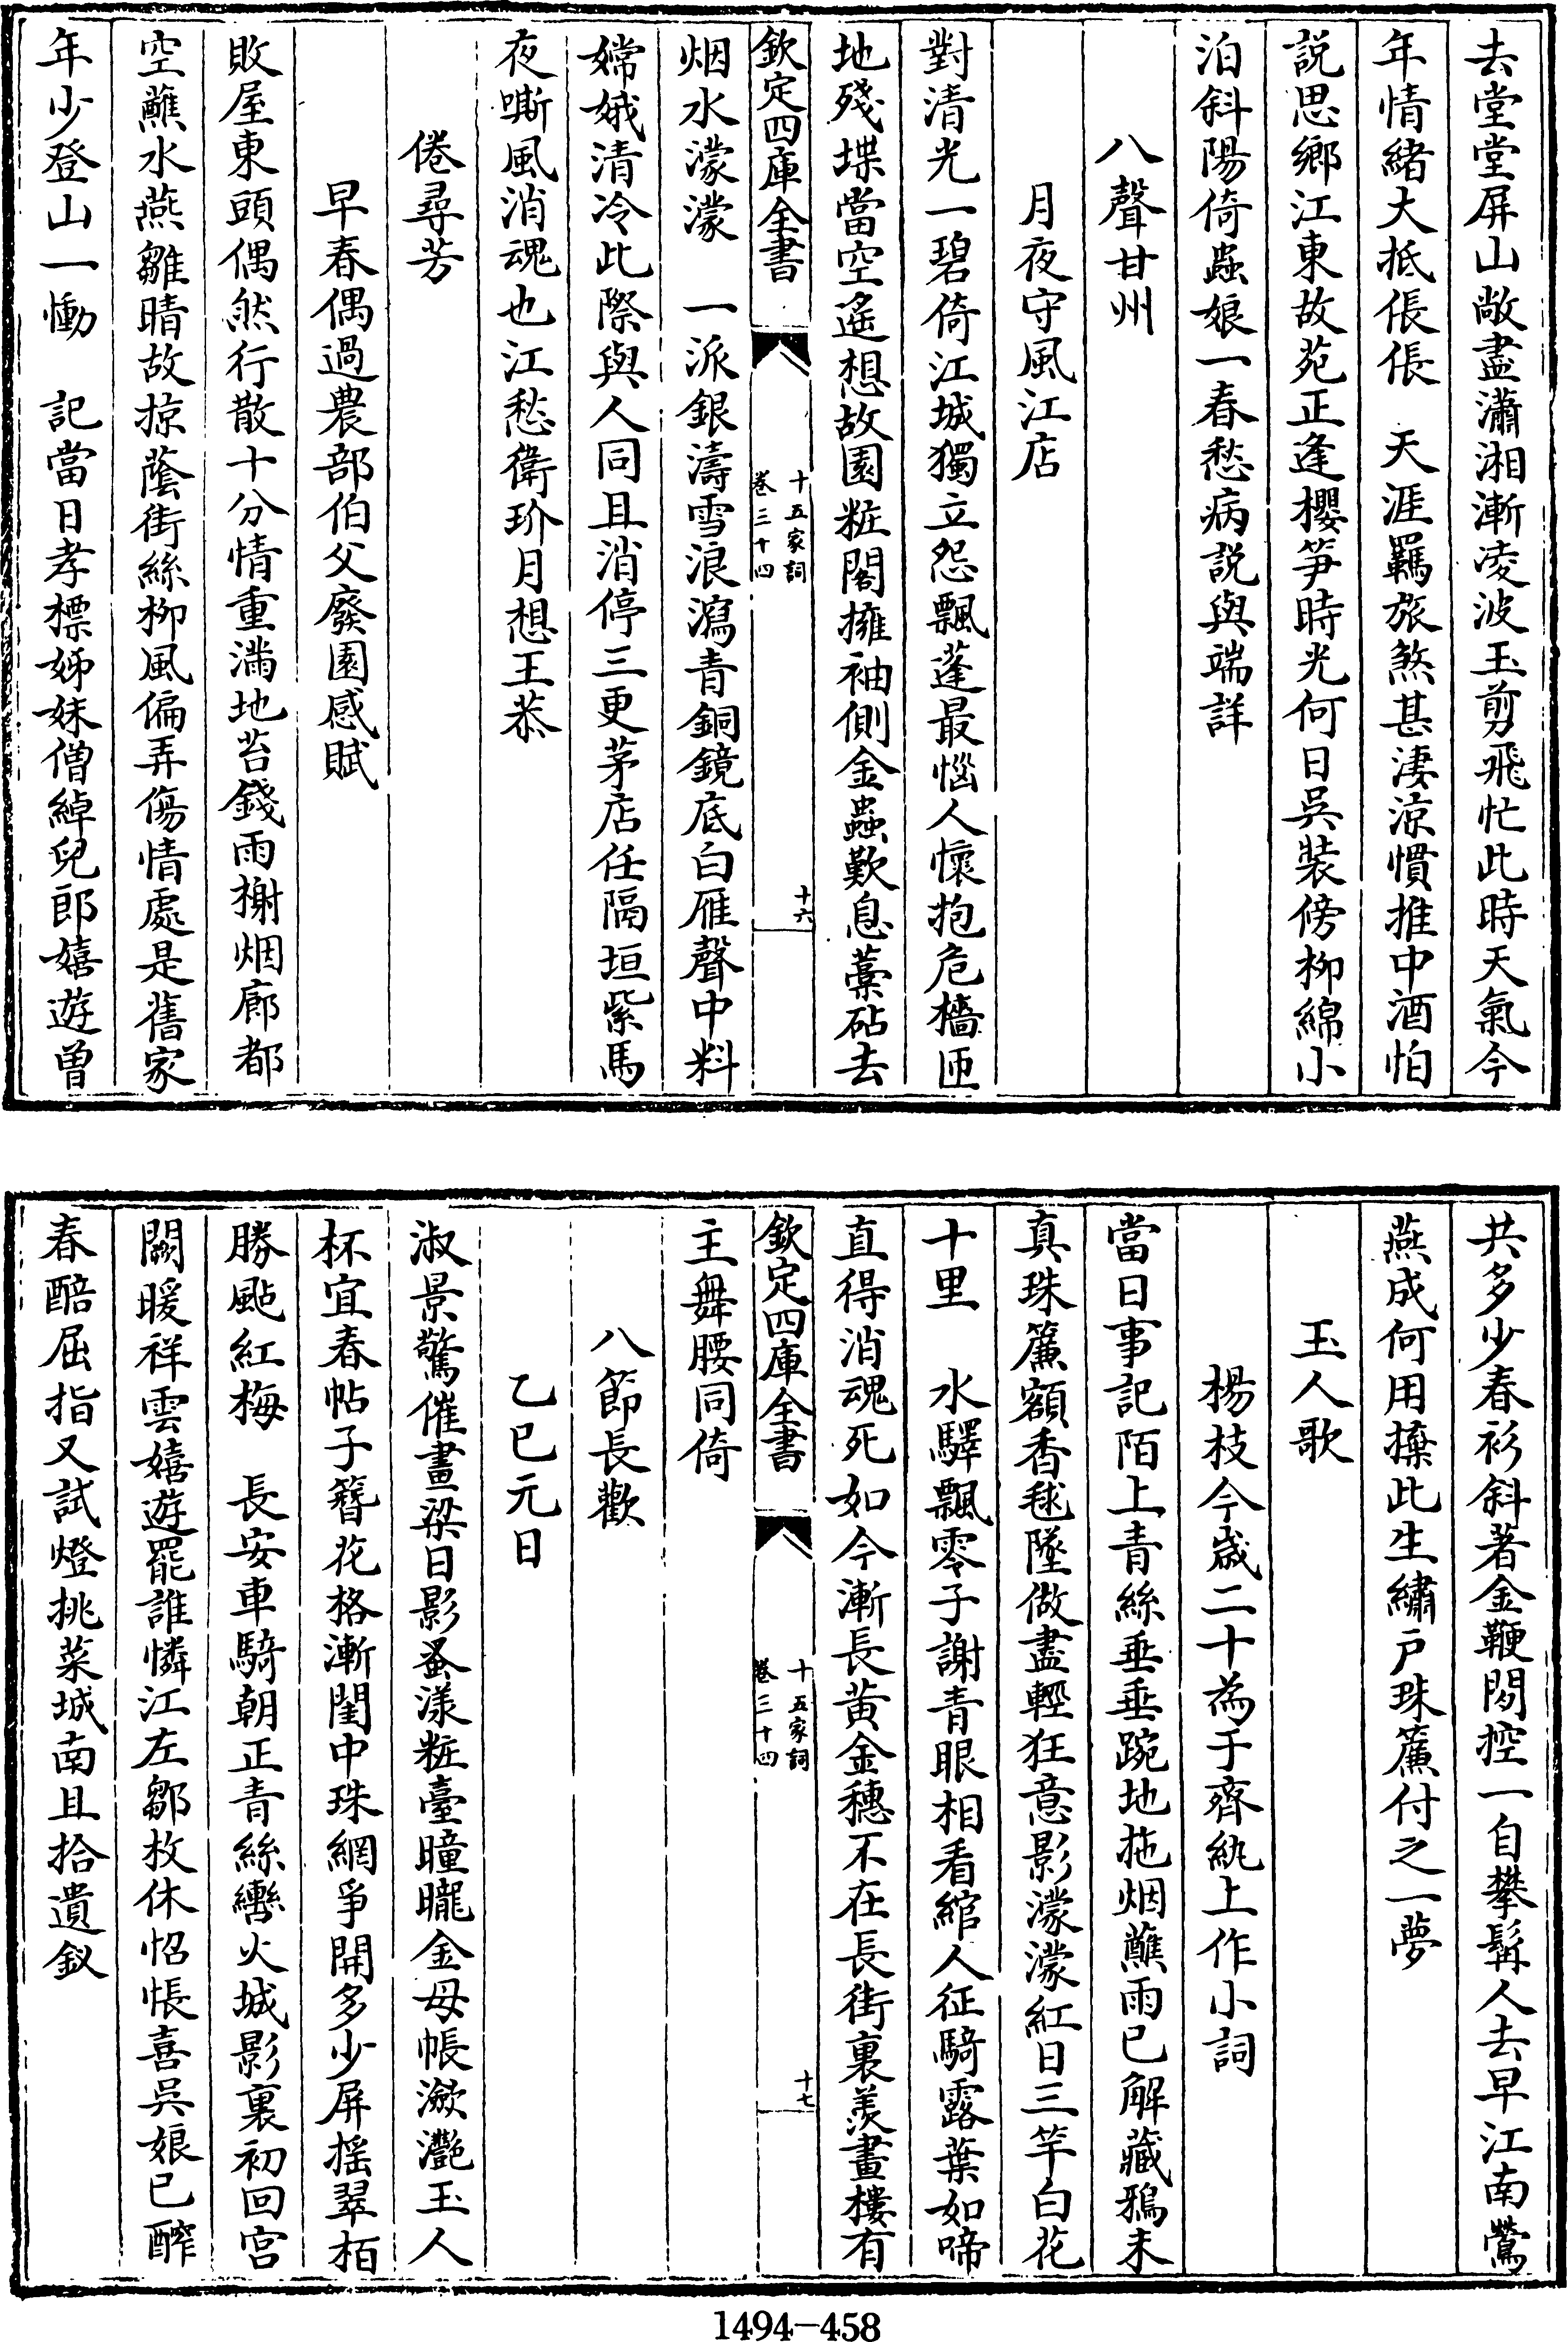 去堂堂屏山敞盡瀟湘漸凌波玉剪飛忙此時天氣今
年情緒大抵倀倀　天涯羈旅煞甚淒涼慣推中酒怕
説思鄉江東故苑正逢櫻笋時光何日吳裝傍柳綿小
泊斜陽倚蟲娘一春愁病説與端詳
八聲甘州
月夜守風江店
對清光一碧倚江城獨立怨飄蓬最惱人懷抱危檣匝
地殘堞當空遙想故園粧閣擁袖側金蟲歎息藁砧去
欽定四庫全書
十五家詞
卷三十四
十六
烟水濛濛　一派銀濤雪浪瀉青銅鏡底白雁聲中料
嫦娥清冷此際與人同且消停三更茅店任隔垣紫馬
夜嘶風消魂也江愁衛玠月想王恭
倦尋芳
早春偶過農部伯父廢園感賦
敗屋東頭偶然行散十分情重滿地苔錢雨榭烟廊都
空蘸水燕雛晴故掠蔭街絲柳風偏弄傷情處是舊家
年少登山一慟　記當日孝標姊妹僧綽兒郎嬉遊曽
共多少春衫斜著金鞭閒控一自攀髯人去早江南鶯
燕成何用㩇此生繡戸珠簾付之一夢
玉人歌
楊枝今歲二十為于齊紈上作小詞
當日事記陌上青絲垂垂踠地拖烟蘸雨已解藏鴉未
真珠簾額香毬墜做盡輕狂意影濛濛紅日三竿白花
十里　水驛飄零子謝青眼相看綰人征騎露葉如啼
直得消魂死如今漸長黃金穗不在長街裏羨畫樓有
欽定四庫全書
十五家詞
卷三十四
十七
主舞腰同倚
八節長歡
乙巳元日
淑景驚催畫梁日影蚤漾粧臺曈曨金母帳瀲灧玉人
杯宜春帖子簪花格漸閨中珠網爭開多少屏摇翠栢
勝颭紅梅　長安車騎朝正青絲轡火城影裏初回宫
闕暖祥雲嬉遊罷誰憐江左鄒枚休怊悵喜吳娘已醡
春醅屈指又試燈挑菜城南且拾遺釵
1494-458